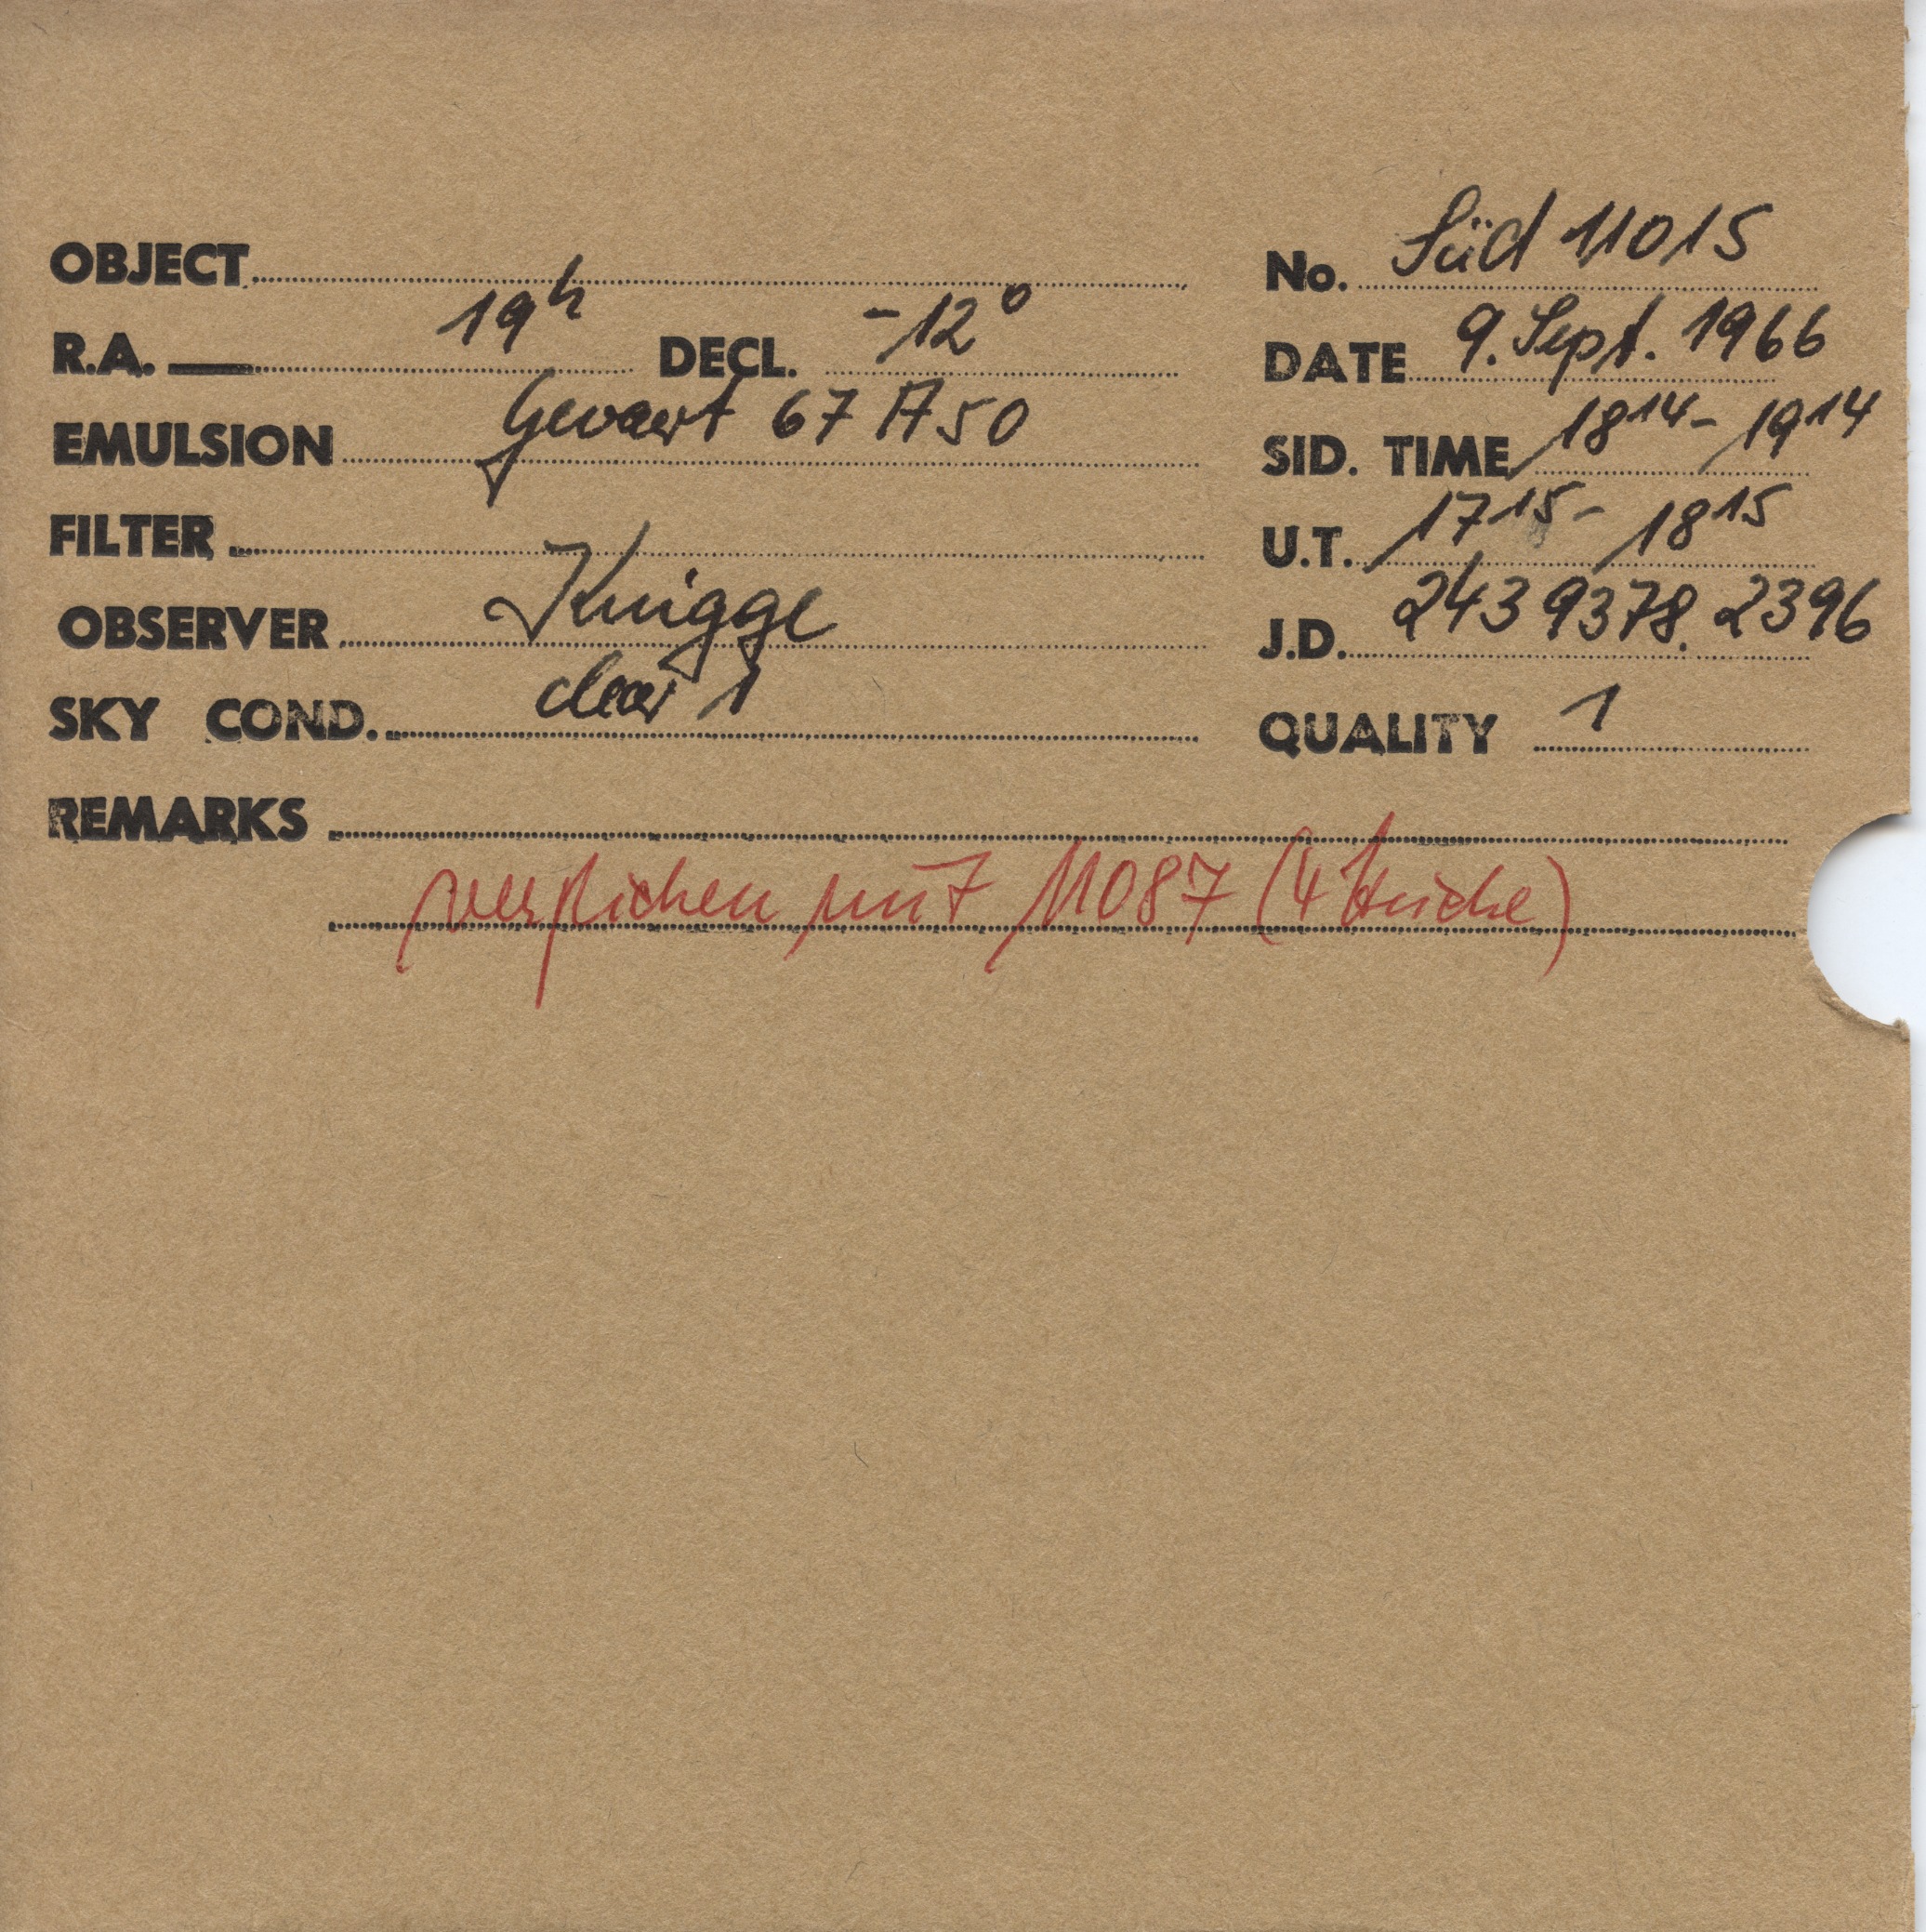 OBJECT
No. Süd 11015
R.A. 19h DECL. -12°
DATE 9. Sept. 1966
EMULSION Gevaert 67 A 50
SID. TIME 18 14 - 19 14
FILTER
U.T. 17 15 - 18 15
OBSERVER Knigge
J.D. 243 9378. 2396
SKY COND. clear 1
QUALITY 1
REMARKS
verglichen mit 11087 (4